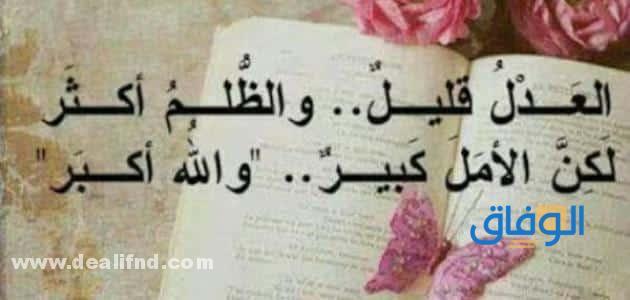 العَـدْلُ قليـلٌ.. والظُّلـمُ أكـثَر
لَكِنَّ الأمَلَ كَبيـرٌ.. "واللهُ أكـبَر"
الوفاق
www.dealifnd.com